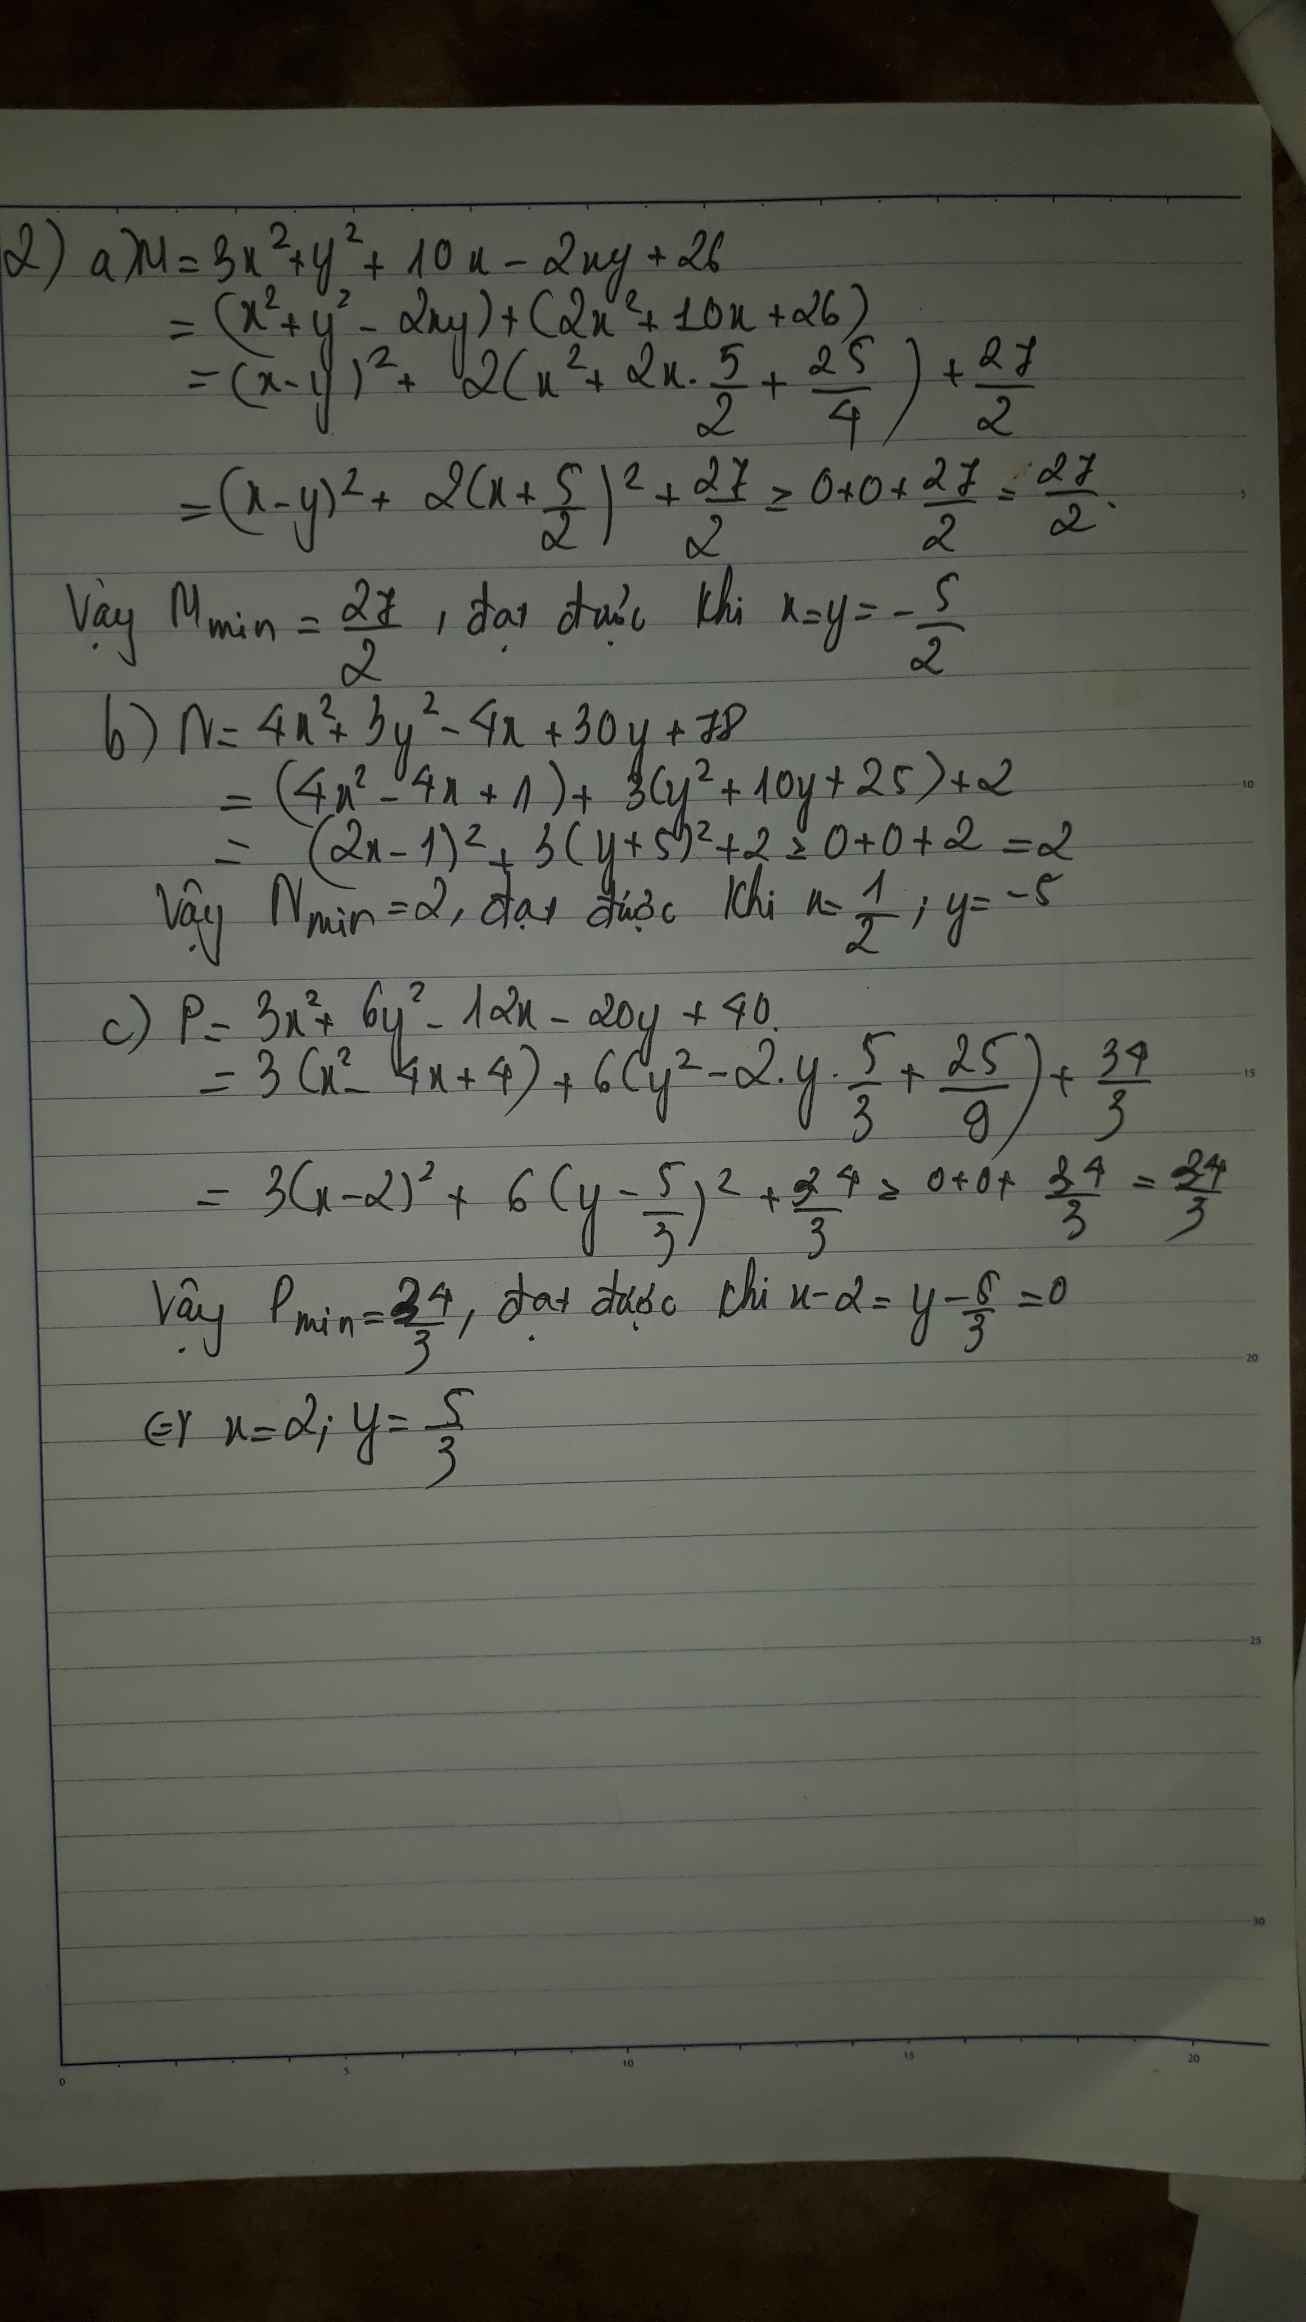 2) a) M = 3x² + y² + 10x - 2xy + 26
= (x² + y² - 2xy) + (2x² + 10x + 26)
= (x - y)² + 2(x² + 2x . 5/2 + 25/4) + 27/2
= (x - y)² + 2(x + 5/2)² + 27/2 ≥ 0 + 0 + 27/2 = 27/2.
Vậy Mmin = 27/2, đạt được khi x = y = -5/2
b) N = 4x² + 3y² - 4x + 30y + 78
= (4x² - 4x + 1) + 3(y² + 10y + 25) + 2
= (2x - 1)² + 3(y + 5)² + 2 ≥ 0 + 0 + 2 = 2
Vậy Nmin = 2, đạt được khi x = 1/2 ; y = -5
c) P = 3x² + 6y² - 12x - 20y + 40.
= 3(x² - 4x + 4) + 6(y² - 2.y . 5/3 + 25/9) + 34/3
= 3(x - 2)² + 6(y - 5/3)² + 34/3 ≥ 0 + 0 + 34/3 = 34/3
Vậy Pmin = 34/3, đạt được khi x - 2 = y - 5/3 = 0
⇔ x = 2; y = 5/3
5
10
15
20
25
30
0 5 10 15 20